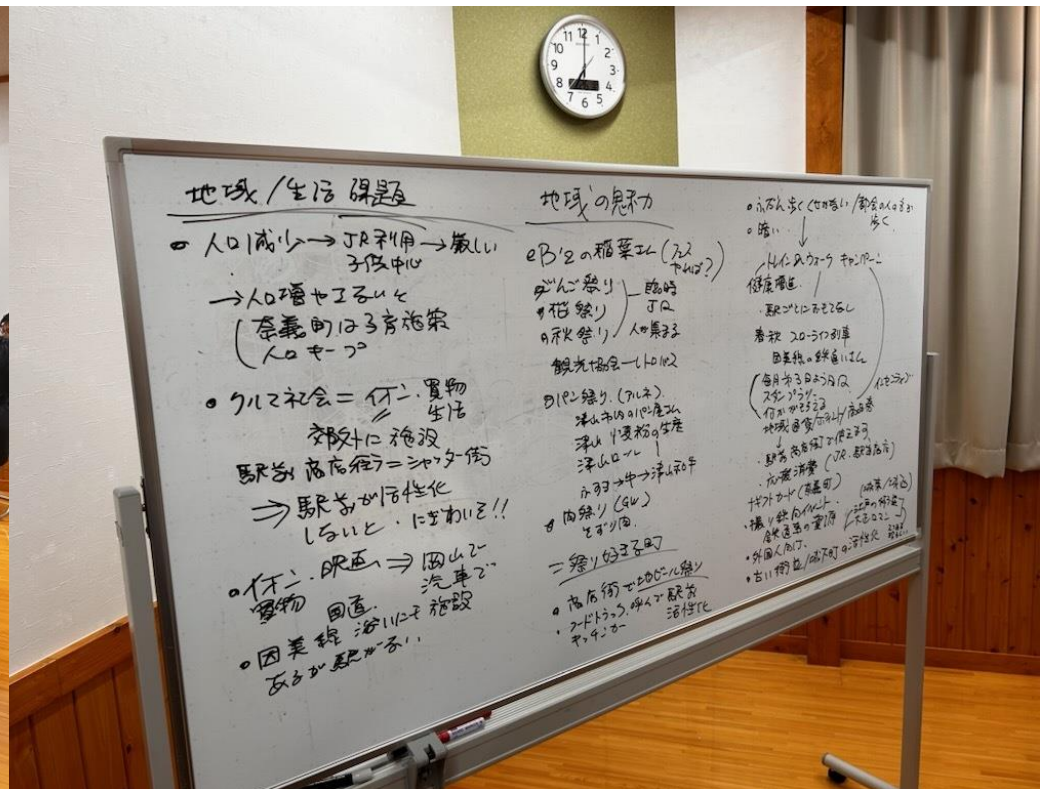 地域/生活 課題
• 人口減少→JR利用→厳しい
子供中心
→人口増やさないと
(奈義町は子育施策
人口キープ
• クルマ社会=イオン・買物
生活
郊外に施設
駅前 商店街ラ=シャッター街
⇒駅前が活性化
しないと・にぎわいを!!
• イオン・映画⇒岡山で
買物 汽車で
• 因美線 沿いにも施設
あるが駅がない
地域の魅力
B'zの稲葉さん(
だんご祭り
桜祭り
秋祭り
臨時
JR
人が集まる
観光協会ーレトロバス
パン祭り.(アルネ)
津山市内のパン屋さん
津山 小麦粉の生産
津山ロール
ふすま→牛→津山和牛
肉祭り(GW)
そずり肉
=祭り好きな町
• 商店街で地ビール祭り
• フードトラック.呼んで駅前
キッチンカー 活性化
• ふだん歩くくせがない/都会の人の方が
歩く
• 暗い
トレイン&ウォーク キャンペーン
健康増進
・駅ごとにおもてなし
春・秋 スローライフ列車
因美線の鉄道いさん
毎月第3日よう日
スタンプラリー
何かがもらえる
インセンティブ
地域通貨/ポイント/商品券
↓
・駅前商店街で使える
・応援消費(JR・駅前商店)
ギフトカード(奈義町)
・撮り鉄向イベント
鉄道
・外国人向け
・古い町並/城下町の活性化